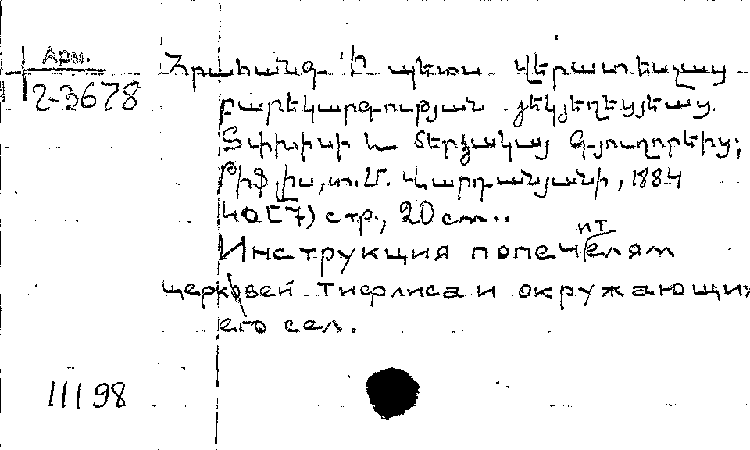 Арм.
2-3678
Հրահանգ ի պետս վերատեսչաց
բարեկարգութեան յեկեղեցեաց
Տփխիսի և մերձակայ գիւղօրէից;
Թիֆլիս, տ. Մ. Վարդանյանի, 1884
40 [7] стр., 20 см..
Инструкция попечителям
церквей Тифлиса и окружающих
его сел.
III 98